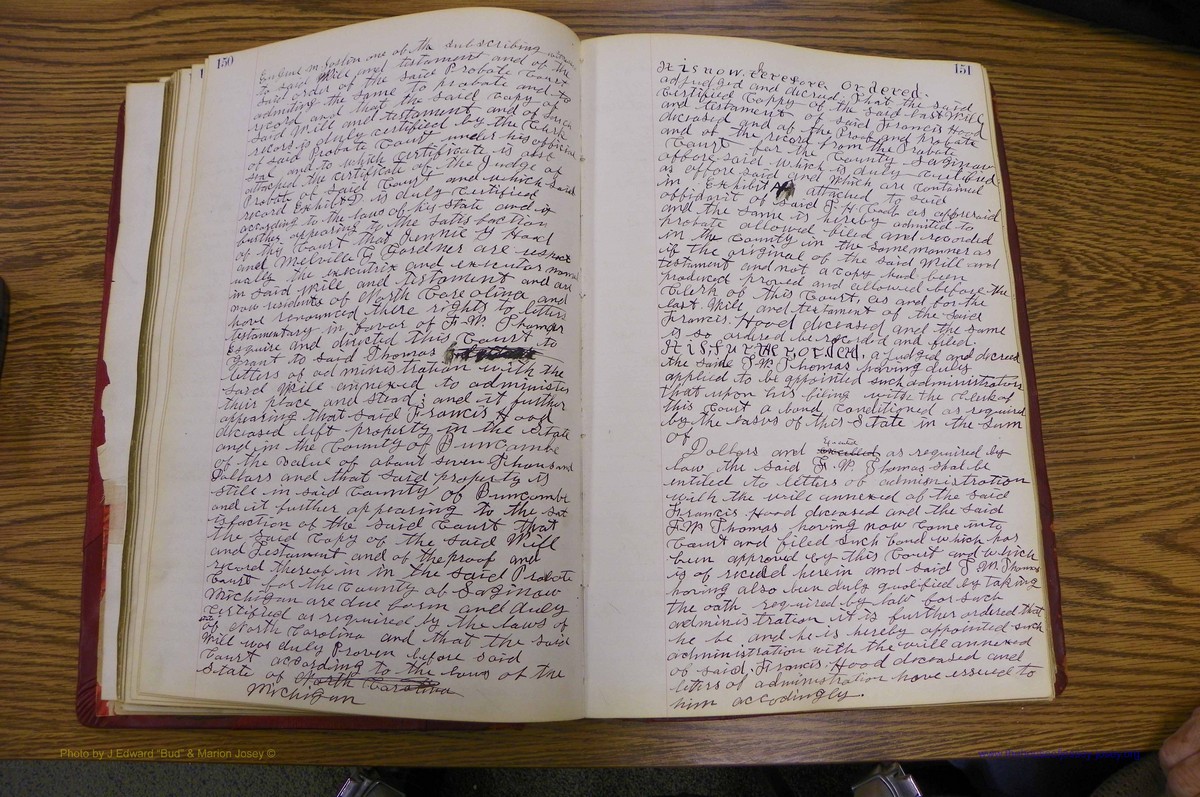 150
to said Will and testament and of the
said order of the said Probate Court
admiting the same to probate and to
record and that the said copy of
said Will and testament and of such
record is duly certified by the Clerk
of said Probate Court under his official
seal and to which certificate is also
attached the certificate of the Judge of
Probate of said Court and which said
record Exhibit is duly certified
according to the laws of his state and it
further appearing to the satisfaction
of the Court that Jennie Y Hood
and Melville G Gordner are respect
ually the executrix and executor named
in said Will and testament and are
now residents of North Carolina and
have renounced there rights to letters
testamentary in favor of F. W. Thomas
Esquire and directed this Court to
Grant to said Thomas
letters of administration with the
said Will annexed to administer
their place and stead; and it further
appearing that said Francis Hood
deceased left property in the Estate
and in the County of Buncombe
of the value of about seven Thousand
Dollars and that said property is
still in said County of Buncombe
and it further appearing to the sat
isfaction of the said Court that
the said Copy of the said Will
and Testament and of the proof and
record thereof in in the said Probate
Court for the County of Saginaw
Michigan are due form and duly
certified as required by the laws of
of North Carolina and that the said
Will was duly Proven before said
Court according to the laws of the
State of North Carolina
Michigan
151
It is now, therefore, Ordered.
adjudged and decreed that the said
Certified Coppy of the said last Will
and testament of said Francis Hood
deceased and of the Proof and probate
and of the record from the Probate
Court for the County Saginaw
afforesaid which is duly certified
as afforesaid and which are contained
in Exhibit attached to said
affidavit of said as afforesaid
and the same is hereby admited to
probate allowed filed and recorded
in the County in the same manner as
if the original of the said Will and
testament and not a copy had been
produced proved and allowed before the
Clerk of this Court, as and for the
last Will and testament of the said
Francis Hood deceased and the same
is so ordered be recorded and filed.
It is, further, ordered, adjudged and decreed
the same F. W. Thomas having duly
applied to be appointed such administrators
that upon his filing with the Clerk of
this Court a bond conditioned as required
by the laws of this State in the sum
of
Dollars and as required by
law the said F. W. Thomas shal be
entitled to letters of administration
with the will annexed of the said
Francis Hood deceased and the said
F. W. Thomas having now come into
Court and filed such bond which has
been approved by this Court and which
is of record herein and said F. W. Thomas
having also been duly qualified by taking
the oath required by law for such
administration it is further ordered that
he be and he is hereby appointed such
administration with the will annexed
of said Francis Hood deceased and
letters of administration have essued to
him accodingly.
Photo by J Edward "Bud" & Marion Josey ©